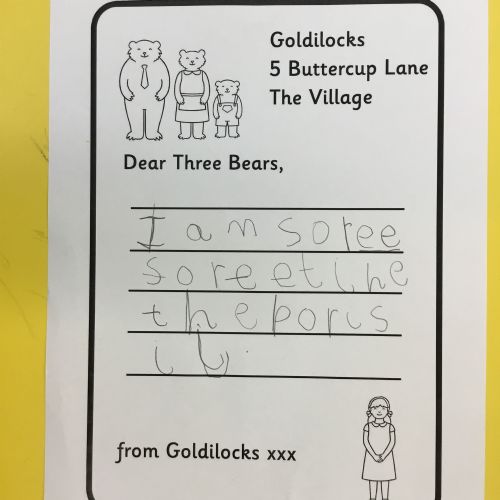 Goldilocks
5 Buttercup Lane
The Village
Dear Three Bears,
I am soree
soreetihe
theporis
from Goldilocks xxx